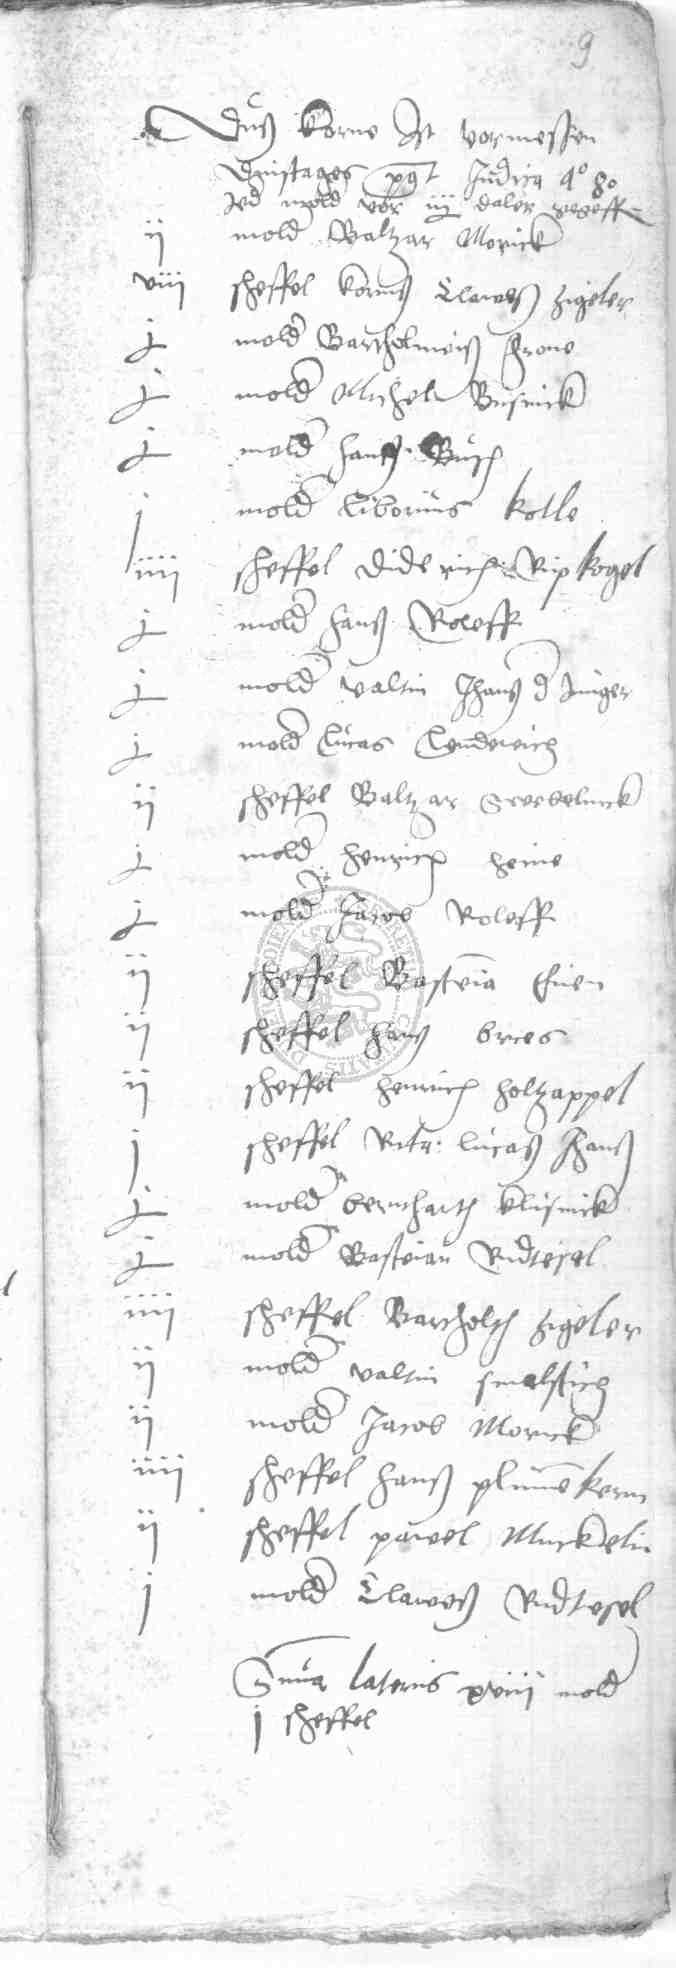 9
Duß korne Ist vormessen
Dinstages post Judica 4° 8°
Jed mold vor iij daler gegeff
ij mold Baltzar Morick
viij sheffel korns Claweß zigeler
j mold Bartholmeiß Frone
j mold Michel Busnick
j mold Hanß Busch
j mold Liborius Kolle
iiij sheffel Diderich Ripkogel
j mold Hanß Roleff
j mold Valtin Jhanß d Junger
j mold Lucas Lendereich
ij sheffel Baltzar
j mold Henrich Heine
j mold Jacob Roleff
ij sheffel Basteia Huen
ij sheffel Hanß brces
ij sheffel Henrich Holtzappel
j sheffel Lucaß Hanß
j mold bernharth klusnick
j mold Bastian Rudtesel
iiij sheffel Bartholth zigeler
ij mold Valtin smalstich
ij mold Jacob Morick
iiij sheffel Hanß plumekern
ij sheffel pawel Muckelin
j mold Claweß Rudtesel
Suma lateris xviij mold
j sheffel